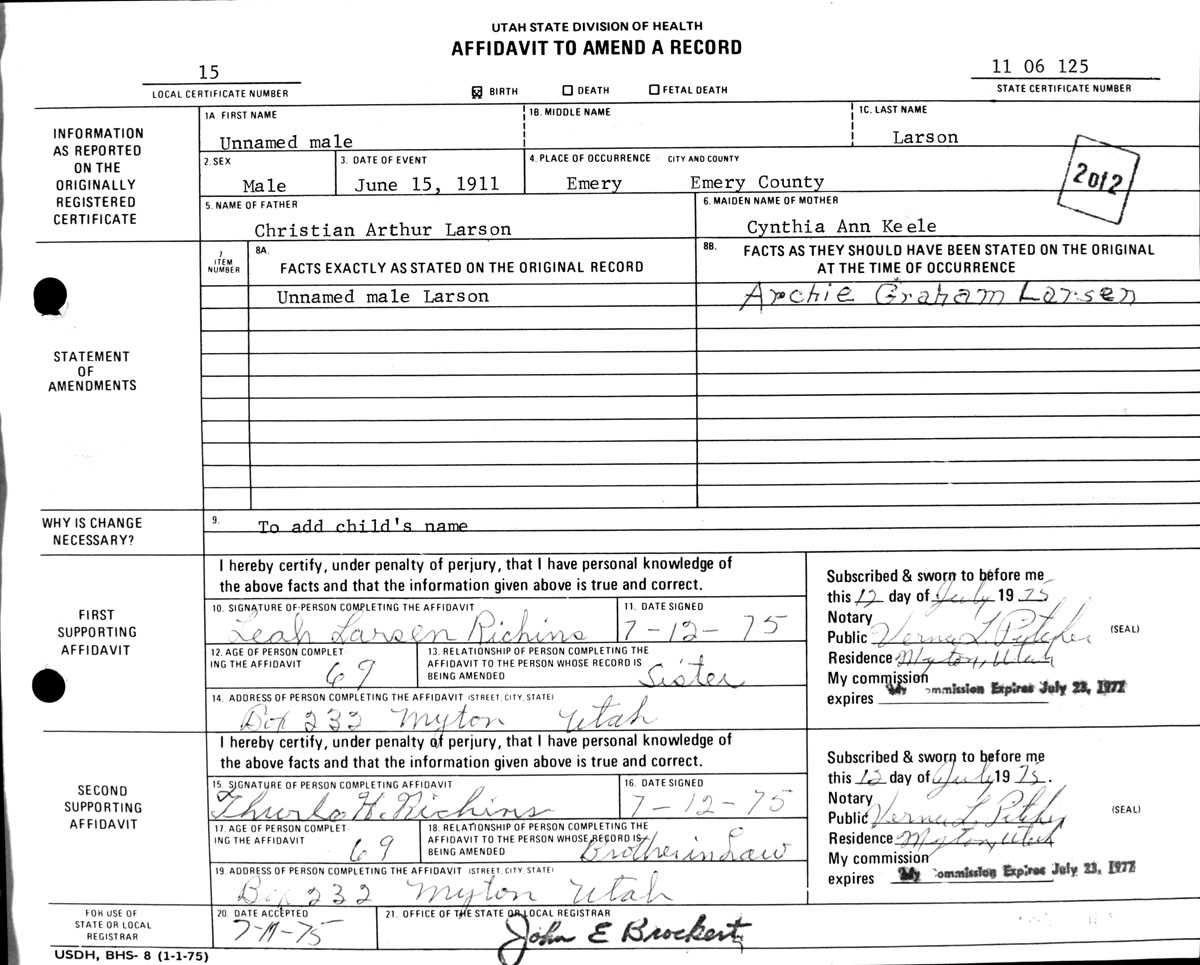 UTAH STATE DIVISION OF HEALTH
AFFIDAVIT TO AMEND A RECORD
15
LOCAL CERTIFICATE NUMBER
☒ BIRTH ☐ DEATH ☐ FETAL DEATH
11 06 125
STATE CERTIFICATE NUMBER
INFORMATION AS REPORTED ON THE ORIGINALLY REGISTERED CERTIFICATE
1A. FIRST NAME 1B. MIDDLE NAME 1C. LAST NAME
Unnamed male Larson
2. SEX 3. DATE OF EVENT 4. PLACE OF OCCURRENCE CITY AND COUNTY
Male June 15, 1911 Emery Emery County
2 of 2
5. NAME OF FATHER 6. MAIDEN NAME OF MOTHER
Christian Arthur Larson Cynthia Ann Keele
STATEMENT OF AMENDMENTS
7 ITEM NUMBER
8A. FACTS EXACTLY AS STATED ON THE ORIGINAL RECORD
8B. FACTS AS THEY SHOULD HAVE BEEN STATED ON THE ORIGINAL
AT THE TIME OF OCCURRENCE
Unnamed male Larson Archie Graham Larsen
WHY IS CHANGE NECESSARY?
9. To add child's name
FIRST SUPPORTING AFFIDAVIT
I hereby certify, under penalty of perjury, that I have personal knowledge of
the above facts and that the information given above is true and correct.
10. SIGNATURE OF PERSON COMPLETING THE AFFIDAVIT 11. DATE SIGNED
Leah Larsen Richins 7-12-75
12. AGE OF PERSON COMPLETING THE AFFIDAVIT 69
13. RELATIONSHIP OF PERSON COMPLETING THE AFFIDAVIT TO THE PERSON WHOSE RECORD IS BEING AMENDED Sister
14. ADDRESS OF PERSON COMPLETING THE AFFIDAVIT (STREET, CITY, STATE)
Box 232 Myton Utah
Subscribed & sworn to before me
this 12 day of July 1975
Notary
Public Verna L Pitcher (SEAL)
Residence Myton, Utah
My commission
expires My Commission Expires July 23, 1977
SECOND SUPPORTING AFFIDAVIT
I hereby certify, under penalty of perjury, that I have personal knowledge of
the above facts and that the information given above is true and correct.
15. SIGNATURE OF PERSON COMPLETING AFFIDAVIT 16. DATE SIGNED
H. Richins 7-12-75
17. AGE OF PERSON COMPLETING THE AFFIDAVIT 69
18. RELATIONSHIP OF PERSON COMPLETING THE AFFIDAVIT TO THE PERSON WHOSE RECORD IS BEING AMENDED Brother in Law
19. ADDRESS OF PERSON COMPLETING THE AFFIDAVIT (STREET, CITY, STATE)
Box 232 Myton Utah
Subscribed & sworn to before me
this 12 day of July 1975.
Notary
Public Verna L. Pitcher (SEAL)
Residence Myton, Utah
My commission
expires My Commission Expires July 23, 1977
FOR USE OF STATE OR LOCAL REGISTRAR
20. DATE ACCEPTED 21. OFFICE OF THE STATE OR LOCAL REGISTRAR
John E Brockert
USDH, BHS- 8 (1-1-75)